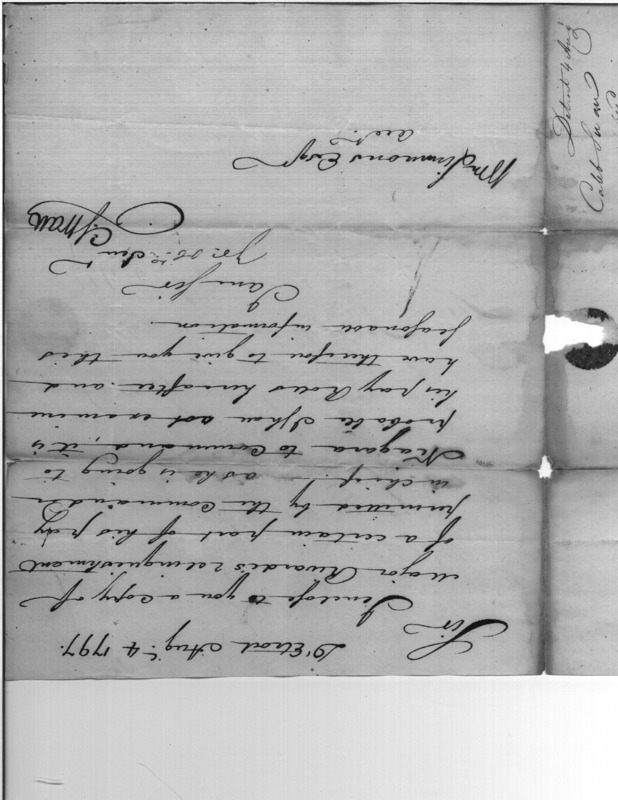 D'Etroit Augt. 4 1797.
Sir
I enclose to you a copy of
Major Rivardi's relinquishment
of a certain part of his pay
permitted by the Command'r
in chief. as he is going to
Niagara to Command, it is
probable I shall not examine
his pay Rolls hereafter and
have therefore to give you this
seasonable information.
I am Sir
Yr. ob. Serv
CSwan
Wm Simmons Esqr
acct.
Detroit 4 Aug
Caleb Swan